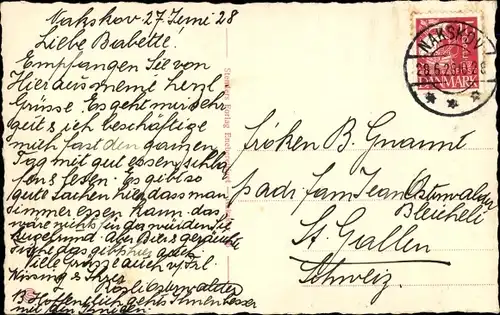 Nakskov 27 Juni 28
Liebe Babette.
Empfangen Sie von
Hier aus meine herzl
Grüsse. Es geht mir sehr
gut & ich beschäftige
mich fast den ganzen
Tag mit gut essen, schla
fen & lesen. Es gibt so
gute Sachen hier dass man
immer essen kann. das
wäre nichts für
kugelrund. Aber Bier &
Viele Grüsse auch v. Frl.
& Ihre
Rösli Osterwalder
Hoffentlich gehts Ihnen besser
mit den
Stenders Forlag
NAKSKOV
28.6.28
DANMARK
Fröken B. Gnannt
padr. fam Jean Osterwalder
Bleicheli
St. Gallen
Schweiz.